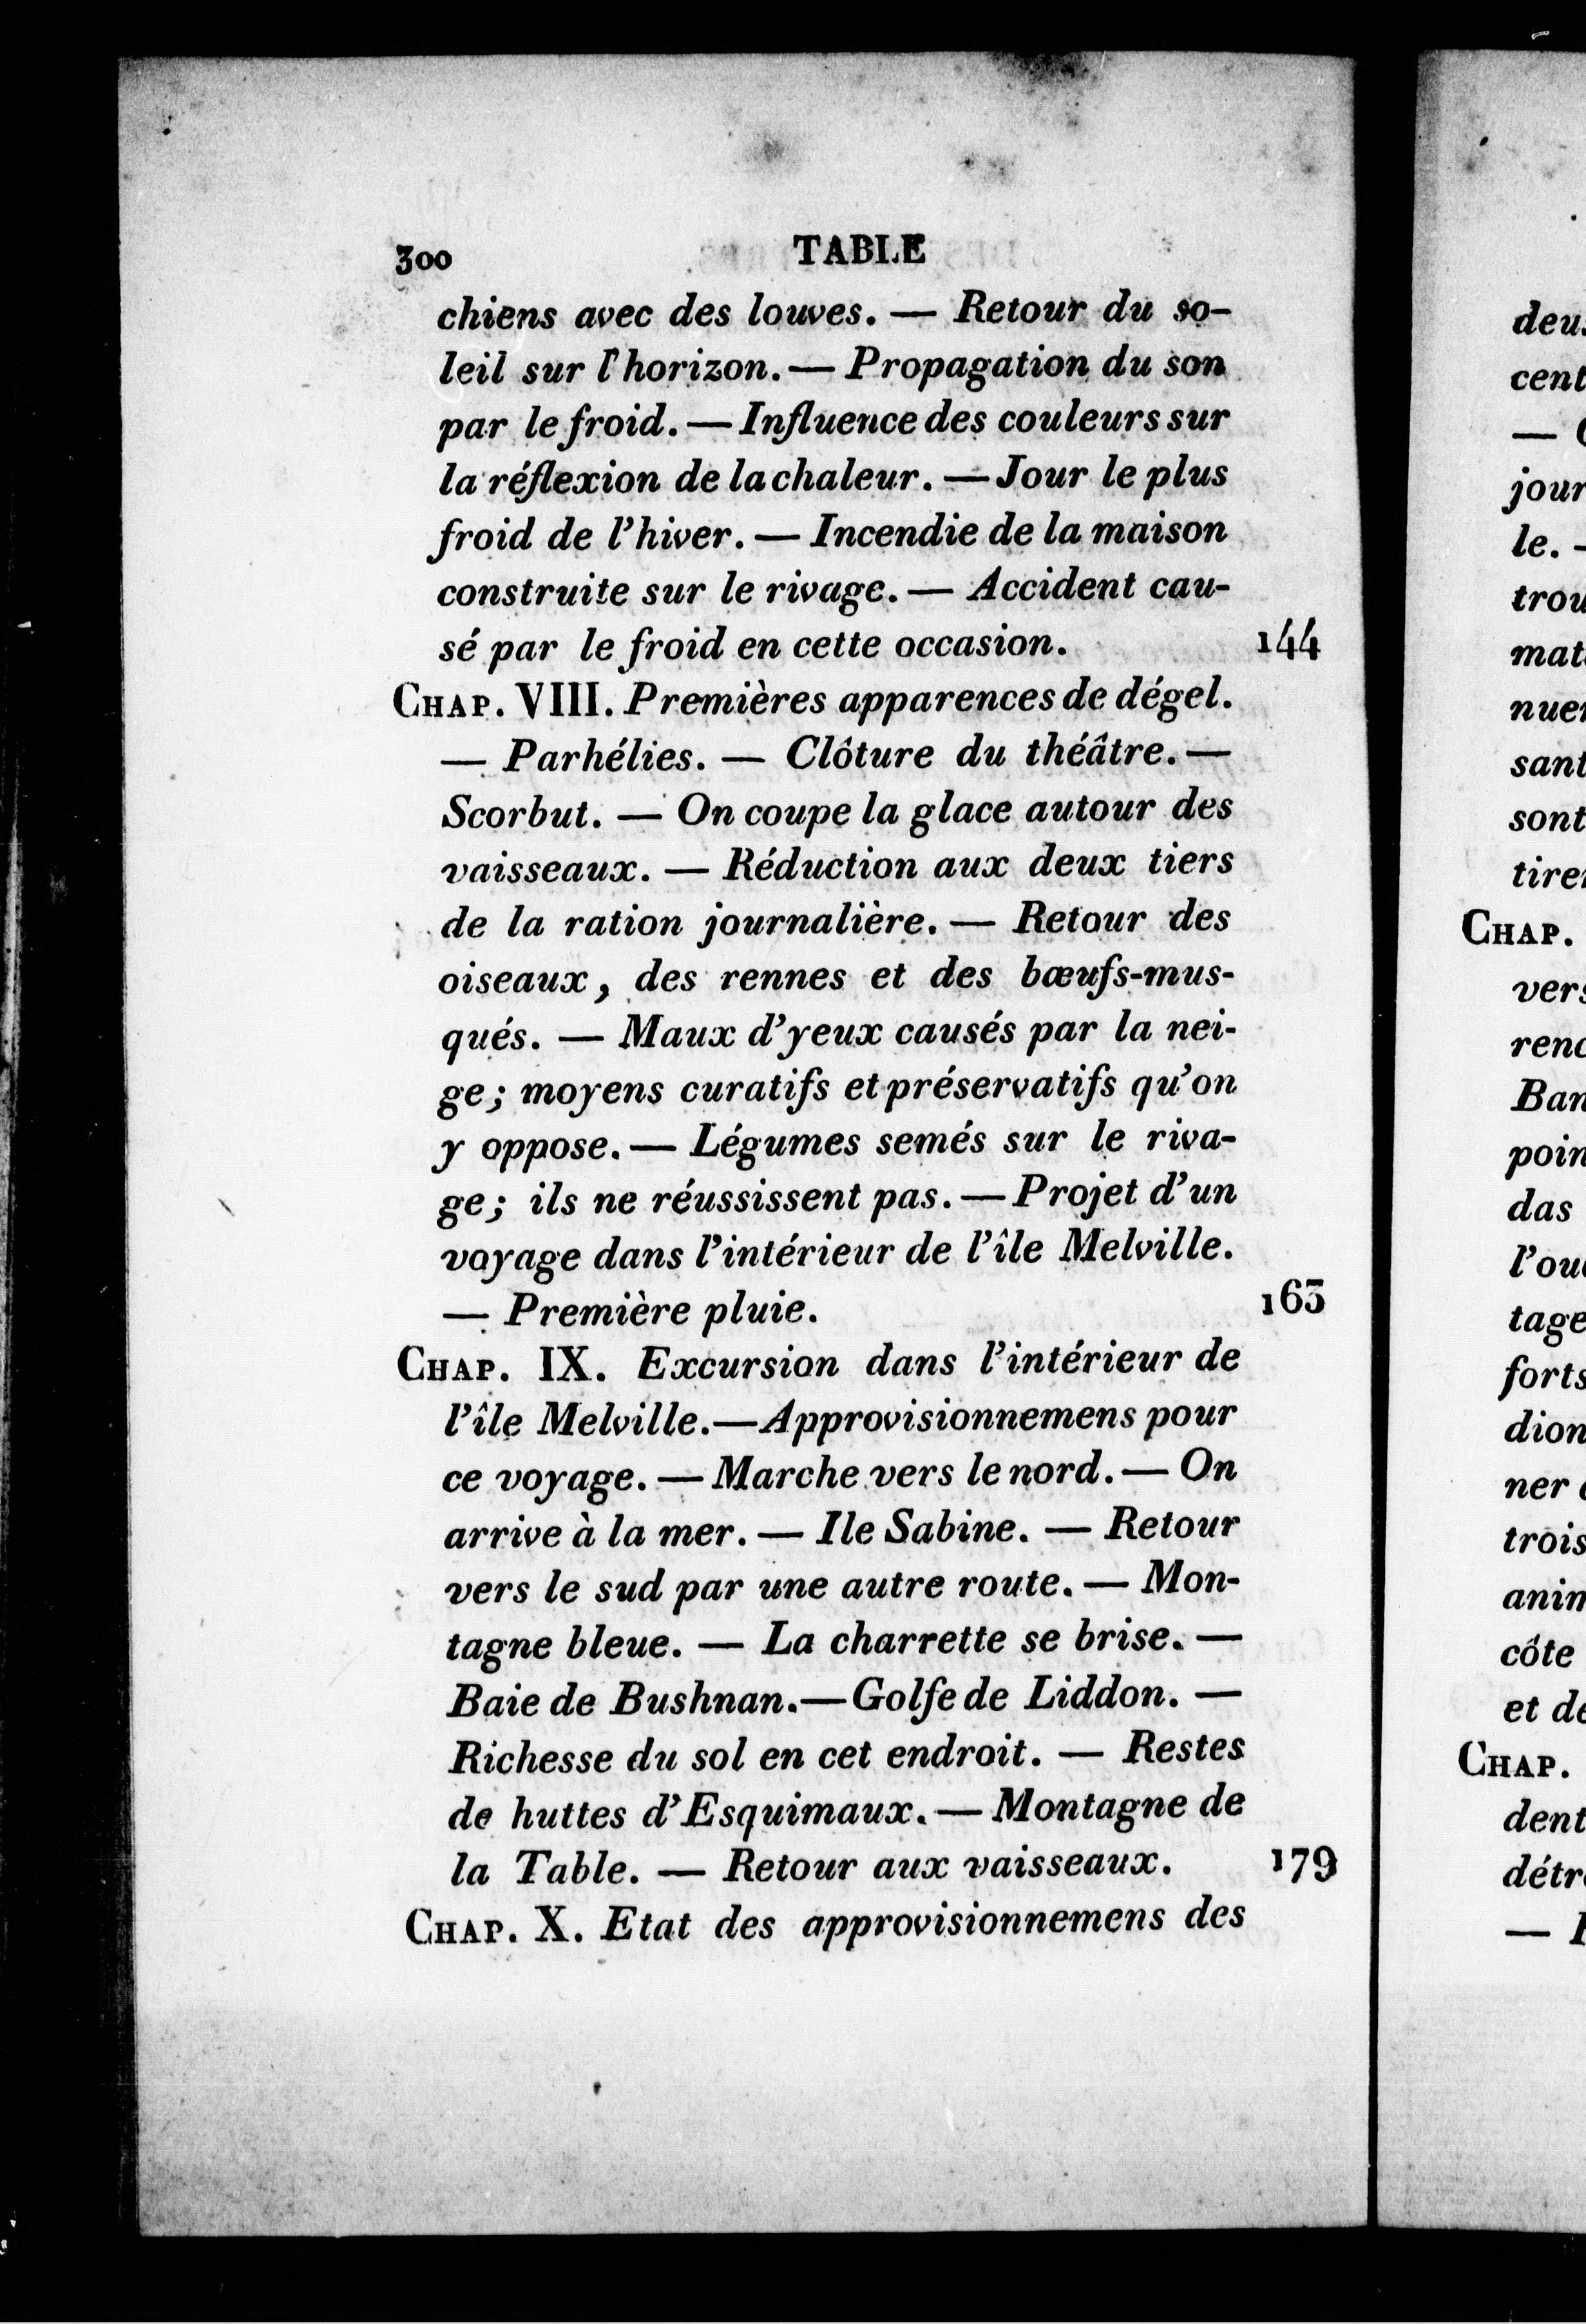 300
TABLE
chiens avec des louves. — Retour du so-
leil sur l'horizon. — Propagation du son
par le froid. — Influence des couleurs sur
la réflexion de la chaleur. — Jour le plus
froid de l'hiver. — Incendie de la maison
construite sur le rivage. — Accident cau-
sé par le froid en cette occasion. 144
CHAP. VIII. Premières apparences de dégel.
— Parhélies. — Clôture du théâtre. —
Scorbut. — On coupe la glace autour des
vaisseaux. — Réduction aux deux tiers
de la ration journalière. — Retour des
oiseaux, des rennes et des bœufs-mus-
qués. — Maux d'yeux causés par la nei-
ge; moyens curatifs et préservatifs qu'on
y oppose. — Légumes semés sur le riva-
ge; ils ne réussissent pas. — Projet d'un
voyage dans l'intérieur de l'île Melville.
— Première pluie. 163
CHAP. IX. Excursion dans l'intérieur de
l'île Melville. — Approvisionnemens pour
ce voyage. — Marche vers le nord. — On
arrive à la mer. — Ile Sabine. — Retour
vers le sud par une autre route. — Mon-
tagne bleue. — La charrette se brise. —
Baie de Bushnan. — Golfe de Liddon. —
Richesse du sol en cet endroit. — Restes
de huttes d'Esquimaux. — Montagne de
la Table. — Retour aux vaisseaux. 179
CHAP. X. Etat des approvisionnemens des
deu
cent
—
jour
le. -
trou
mat
nue
sant
sont
tire
CHAP.
vers
renc
Ban
poin
das
l'ou
tage
forts
dion
ner
trois
anim
côte
et de
CHAP.
dent
détr
—